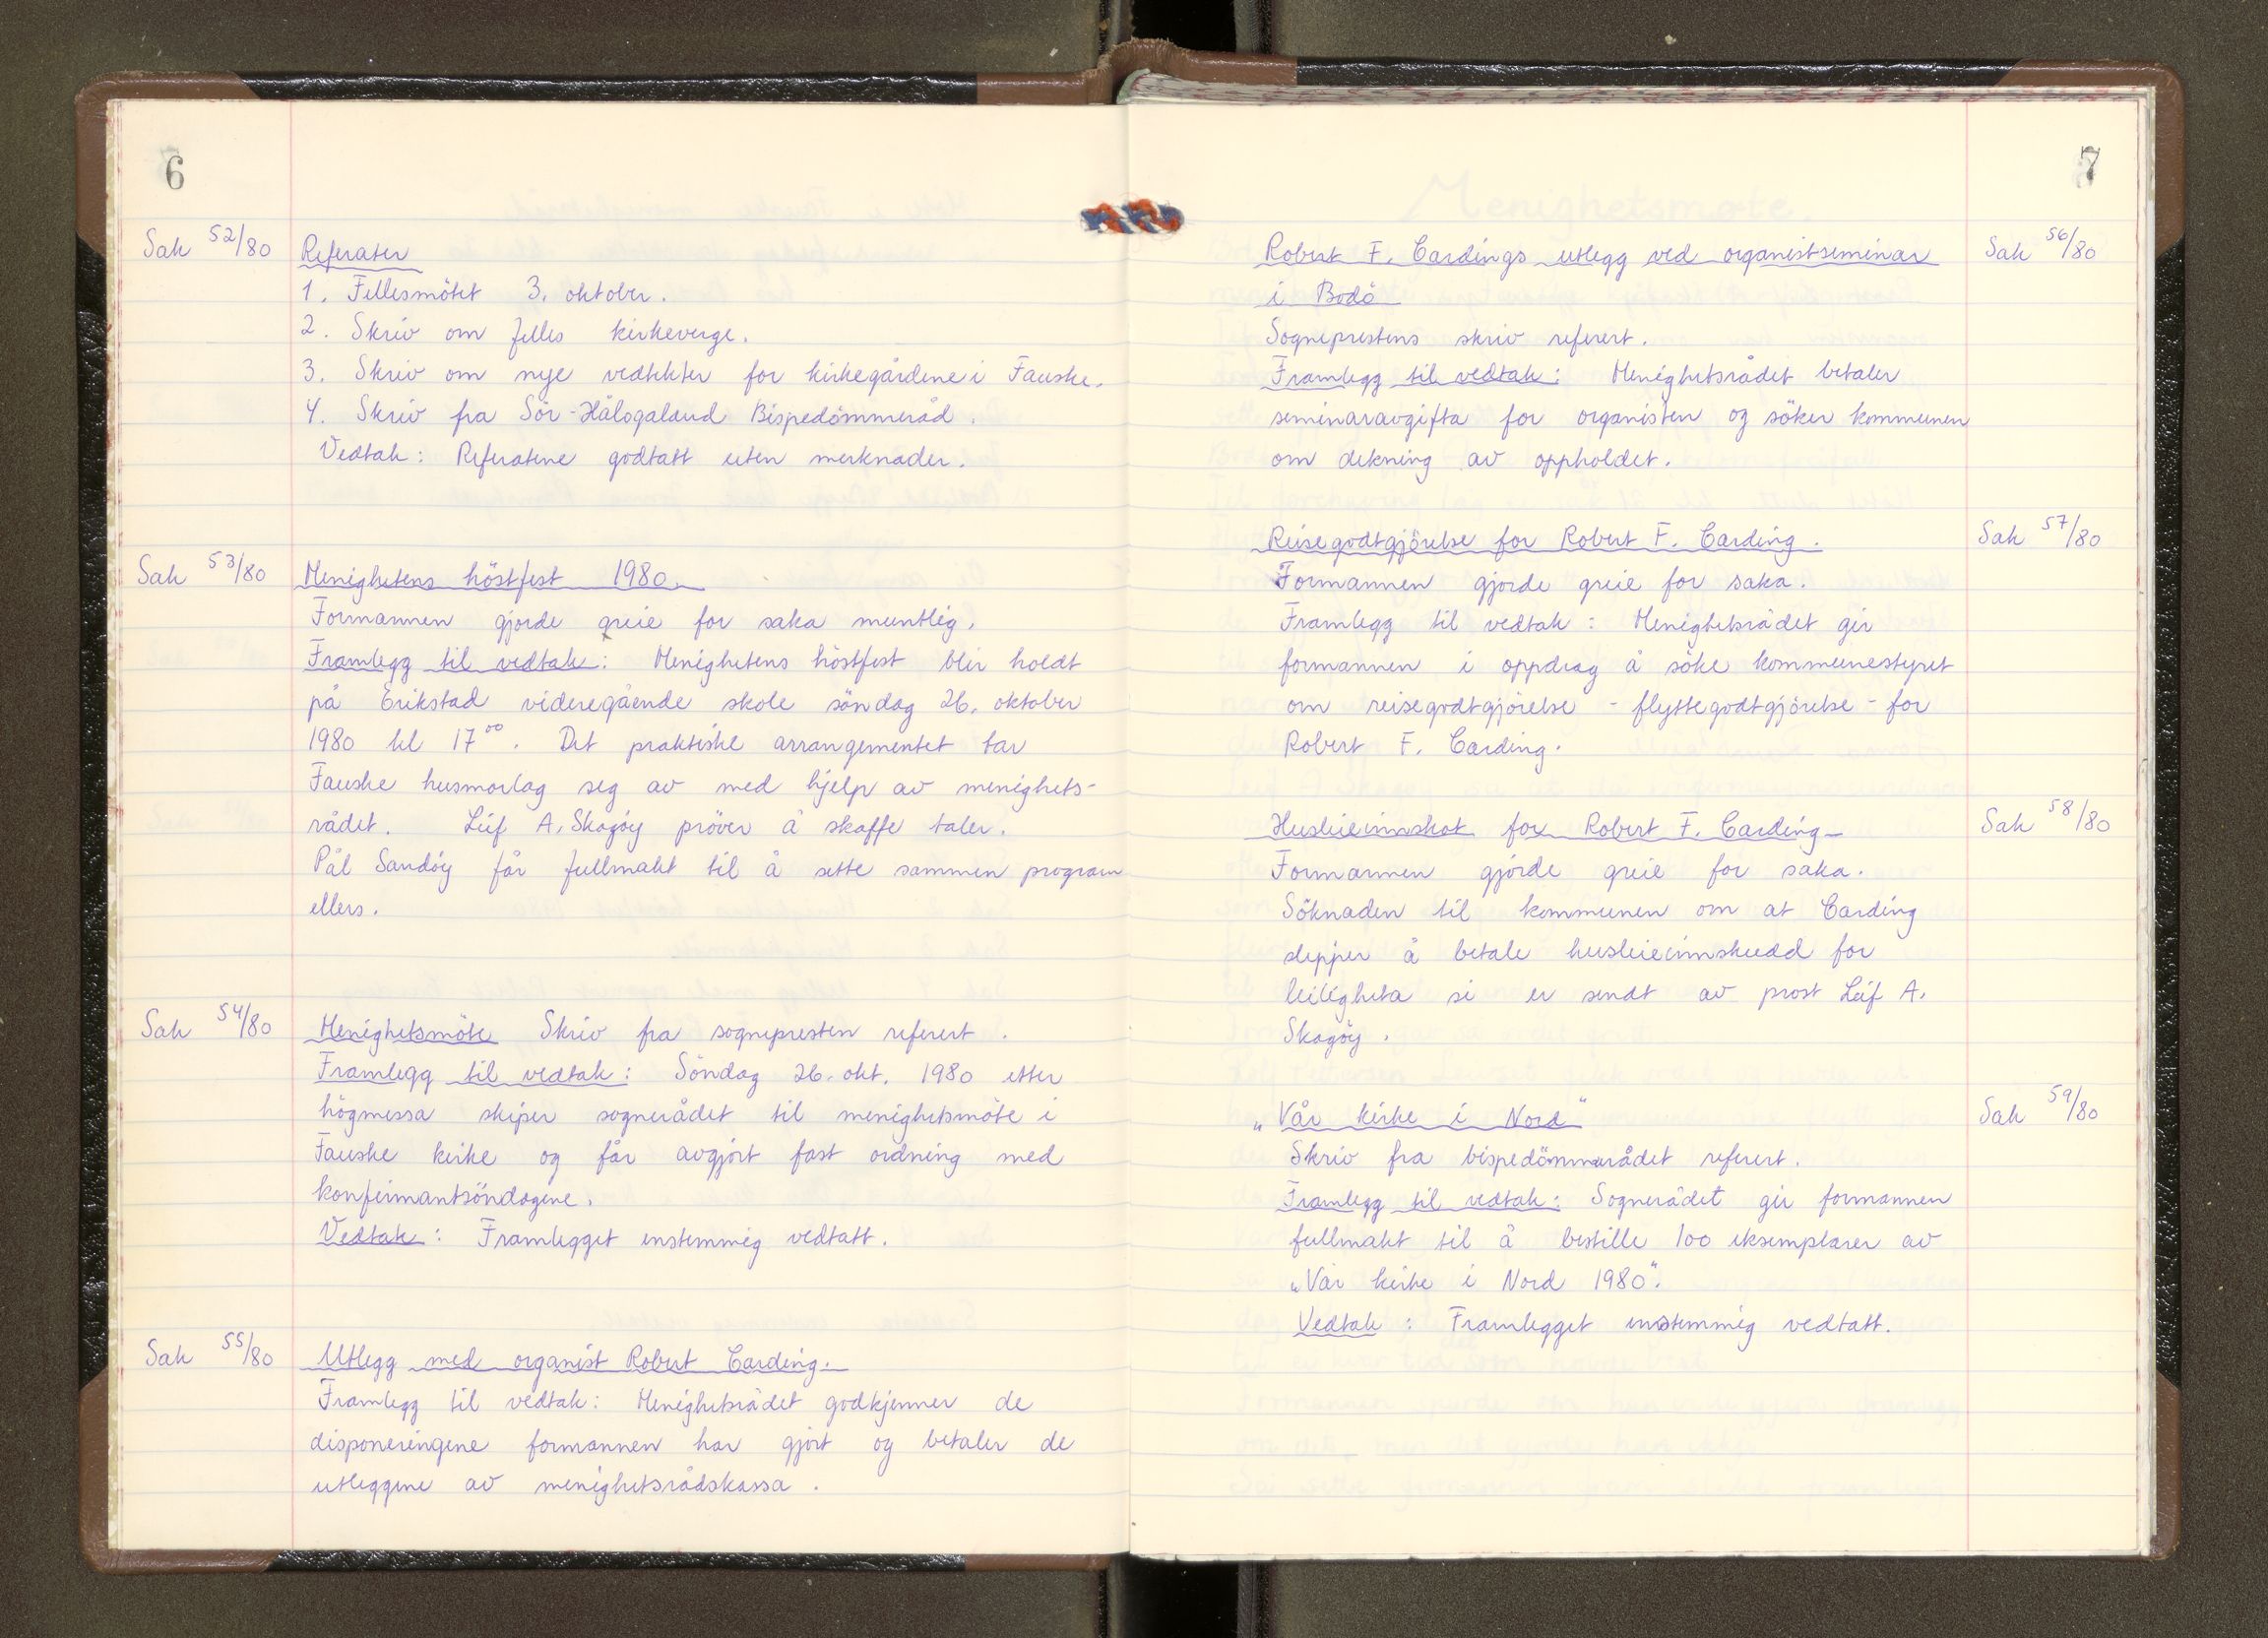 6
Sak 52/80 Referater
1. Fellesmötet 3. oktober.
2. Skriv om felles kirkeverge.
3. Skriv om nye vedtekter for kirkegårdene i Fauske.
4. Skriv fra Sör-Hålogaland Bispedömmeråd.
Vedtak: Referatene godtatt uten merknader.
Sak 53/80 Menighetens höstfest 1980.
Formannen gjorde greie for saka muntlig.
Framlegg til vedtak: Menighetens höstfest blir holdt
på Erikstad videregående skole söndag 26. oktober
1980 kl 17⁰⁰. Det praktiske arrangementet tar
Fauske husmorlag seg av med hjelp av menighets-
rådet. Leif A. Skagöy pröver å skaffe taler.
Pål Sandöy får fullmakt til å sette sammen program
ellers.
Sak 54/80 Menighetsmöte Skriv fra sognepresten referert.
Framlegg til vedtak: Söndag 26. okt. 1980 etter
högmessa skiper sognerådet til menighetsmöte i
Fauske kirke og får avgjört fast ordning med
konfirmantsöndagene.
Vedtak: Framlegget enstemmig vedtatt.
Sak 55/80 Utlegg med organist Robert Carding.
Framlegg til vedtak: Menighetsrådet godkjenner de
disponeringene formannen har gjort og betaler de
utleggene av menighetsrådskassa.
7
Robert F. Cardings utlegg ved organistseminar Sak 56/80
i Bodö
Sogneprestens skriv referert.
Framlegg til vedtak: Menighetsrådet betaler
seminaravgifta for organisten og söker kommunen
om dekning av oppholdet.
Reisegodtgjörelse for Robert F. Carding. Sak 57/80
Formannen gjorde greie for saka.
Framlegg til vedtak: Menighetsrådet gir
formannen i oppdrag å söke kommunestyret
om reisegodtgjörelse - flyttegodtgjörelse - for
Robert F. Carding.
Husleieinnskot for Robert F. Carding Sak 58/80
Formannen gjorde greie for saka.
Söknaden til kommunen om at Carding
slepper å betale husleieinnskudd for
leiligheta si er sendt av prost Leif A.
Skagöy.
„Vår kirke i Nord" Sak 59/80
Skriv fra bispedömmerådet referert.
Framlegg til vedtak: Sognerådet gir formannen
fullmakt til å bestille 100 eksemplarer av
„Vår kirke i Nord 1980".
Vedtak: Framlegget enstemmig vedtatt.